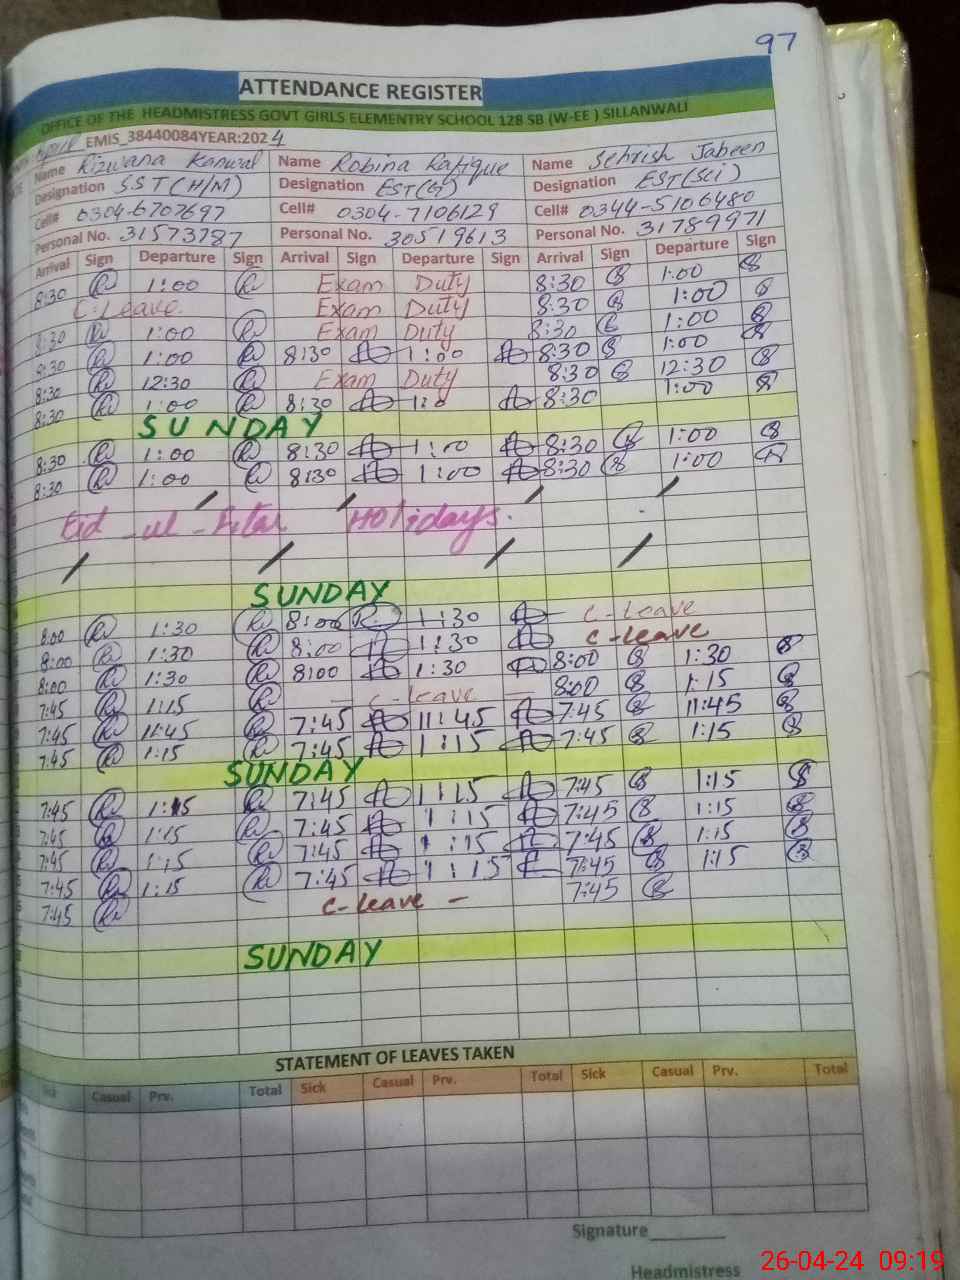 97
ATTENDANCE REGISTER
OFFICE OF THE HEADMISTRESS GOVT GIRLS ELEMENTRY SCHOOL 128 SB (W-EE ) SILLANWALI
April EMIS_38440084YEAR:2024
Name Rizwana Kanwal Name Robina Rafique Name Sehrish Jabeen
Designation S.S.T (H/M) Designation EST(G) Designation EST(Sci)
Cell# 0304-6707697 Cell# 0304-7106129 Cell# 0344-5106480
Personal No. 31573787 Personal No. 30519613 Personal No. 31789971
Arrival Sign Departure Sign Arrival Sign Departure Sign Arrival Sign Departure Sign
8:30 1:00 Exam Duty 8:30 1:00
C-Leave Exam Duty 8:30 1:00
8:30 1:00 Exam Duty 8:30 1:00
8:30 1:00 8:30 1:00 8:30 1:00
8:30 12:30 Exam Duty 8:30 12:30
8:30 1:00 8:30 1:0 8:30 1:00
SUNDAY
8:30 1:00 8:30 1:00 8:30 1:00
8:30 1:00 8:30 1:00 8:30 1:00
Eid-ul-Fitar Holidays.
SUNDAY
8:00 1:30 8:00 1:30 C-Leave
8:00 1:30 8:00 1:30 C-leave
8:00 1:30 8:00 1:30 8:00 1:30
7:45 1:15 - C-leave - 8:00 1:15
7:45 11:45 7:45 11:45 7:45 11:45
7:45 1:15 7:45 1:15 7:45 1:15
SUNDAY
7:45 1:15 7:45 1:15 7:45 1:15
7:45 1:15 7:45 1:15 7:45 1:15
7:45 1:15 7:45 1:15 7:45 1:15
7:45 1:15 7:45 1:15 7:45 1:15
7:45 C-leave - 7:45
SUNDAY
STATEMENT OF LEAVES TAKEN
Sick Casual Prv. Total Sick Casual Prv. Total Sick Casual Prv. Total
Signature
Headmistress
26-04-24 09:19